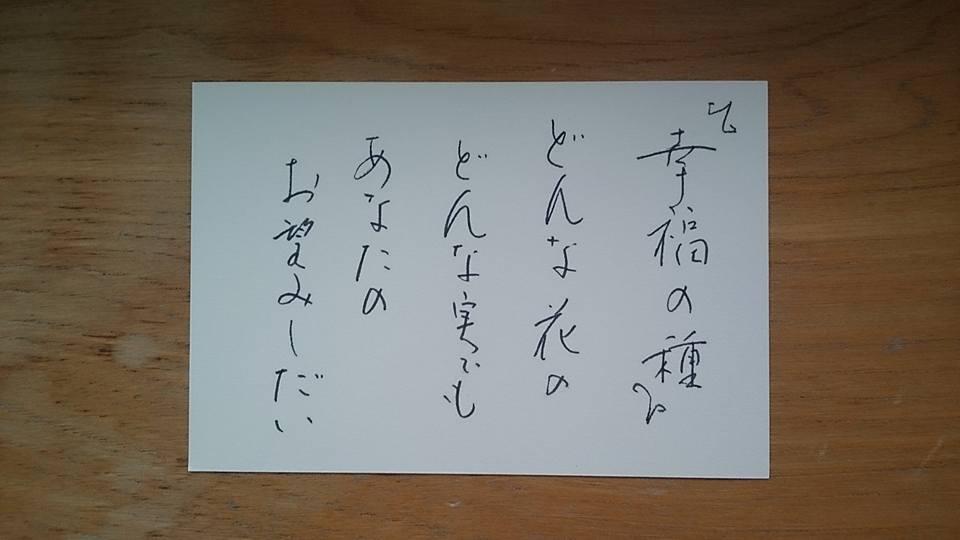 幸福の種
どんな花の
どんな実でも
あなたの
お望みしだい